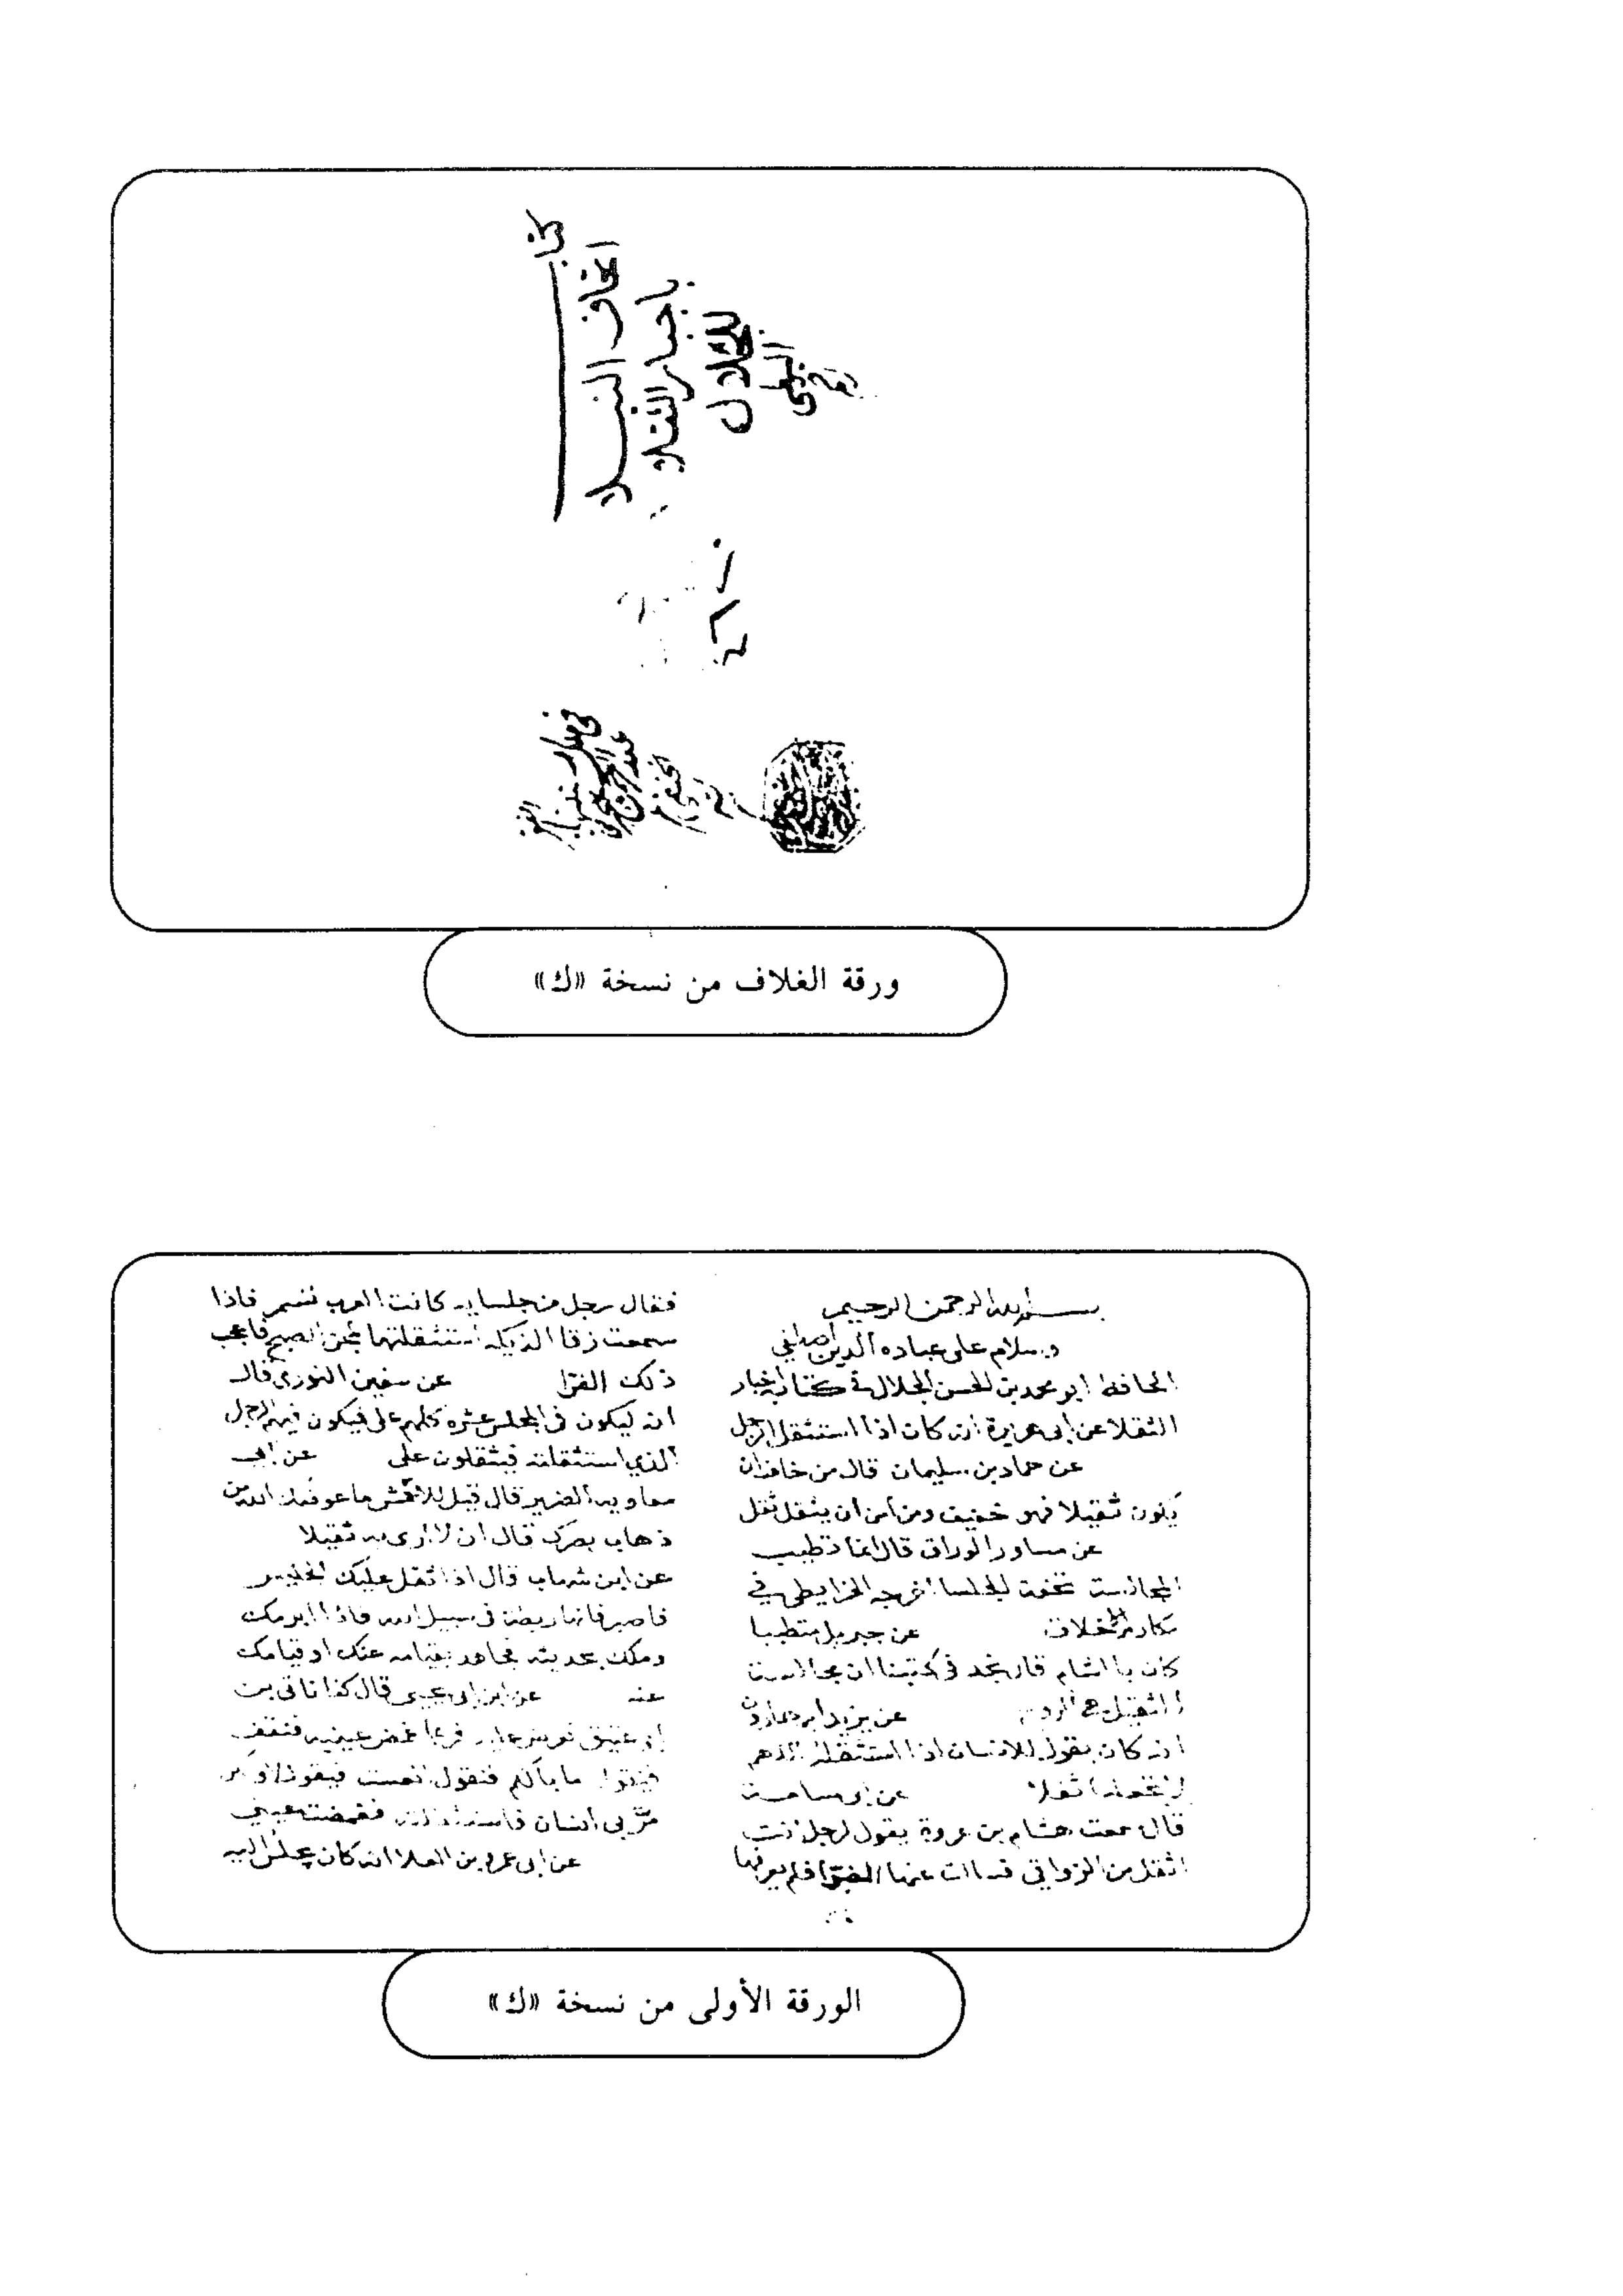 كتاب
اتحاف النبلا
باخبار الثقلا
ورقة الغلاف من نسخة «ك»
بسم الله الرحمن الرحيم
وسلام على عباده الذين اصطفى
الحافظ ابو محمد بن الحسن الخلال في كتابه اخبار
الثقلا عن ابى هريرة انه كان اذا استثقل الرجل
عن حماد بن سليمان قال من خاف ان
يكون ثقيلا فهو خفيف ومن امن ان يثقل ثقل
عن مساور الوراق قال انما تطيب
المجالسة بخفة الجلسا اخرجه الخرايطى في
مكارم الاخلاق عن جبريل متطببا
كان بالشام قال نجد فى كتبنا ان مجالسة
الثقيل حمى الروح عن يزيد بن هارون
انه كان يقول للانسان اذا استثقله اللهم
لا تجعلنا ثقلا عن ابو سامة
قال سمعت هشام بن عروة يقول لرجل انت
اثقل من الزواقي فسالت عنها الفرا فلم يعرفها
فقال رجل من جلسايه كانت العرب تسمر فاذا
سمعت زقا الديكه استثقلتها لمجئ الصبح فاعجب
ذلك الفرا عن سفين الثورى قال
انه ليكون فى المجلس عشره كلهم على فيكون فيهم الرجل
الذي استثقلته فيثقلون على عن ابى
معاويه الضرير قال قيل للاعمش ما عوضك الله من
ذهاب بصرك قال ان لا ارى به ثقيلا
عن ابن شهاب قال اذا ثقل عليك الجليس
فاصبر فانها ربطة فى سبيل الله فاذا ابرمك
وملك بحديثه فجاهد بقيامه عنك او قيامك
عنه عن ابن ابى يحيى قال كنا ناتى بن
ابى عتيق نعرض عليه فربما غمض عينيه فنقف
فيقول ما بالكم فنقول نعست فيقول لا ولكن
مر بى انسان فاستثقلته فغمضت عينى
عن ابى عمرو بن العلا انه كان يجلس اليه
الورقة الأولى من نسخة «ك»